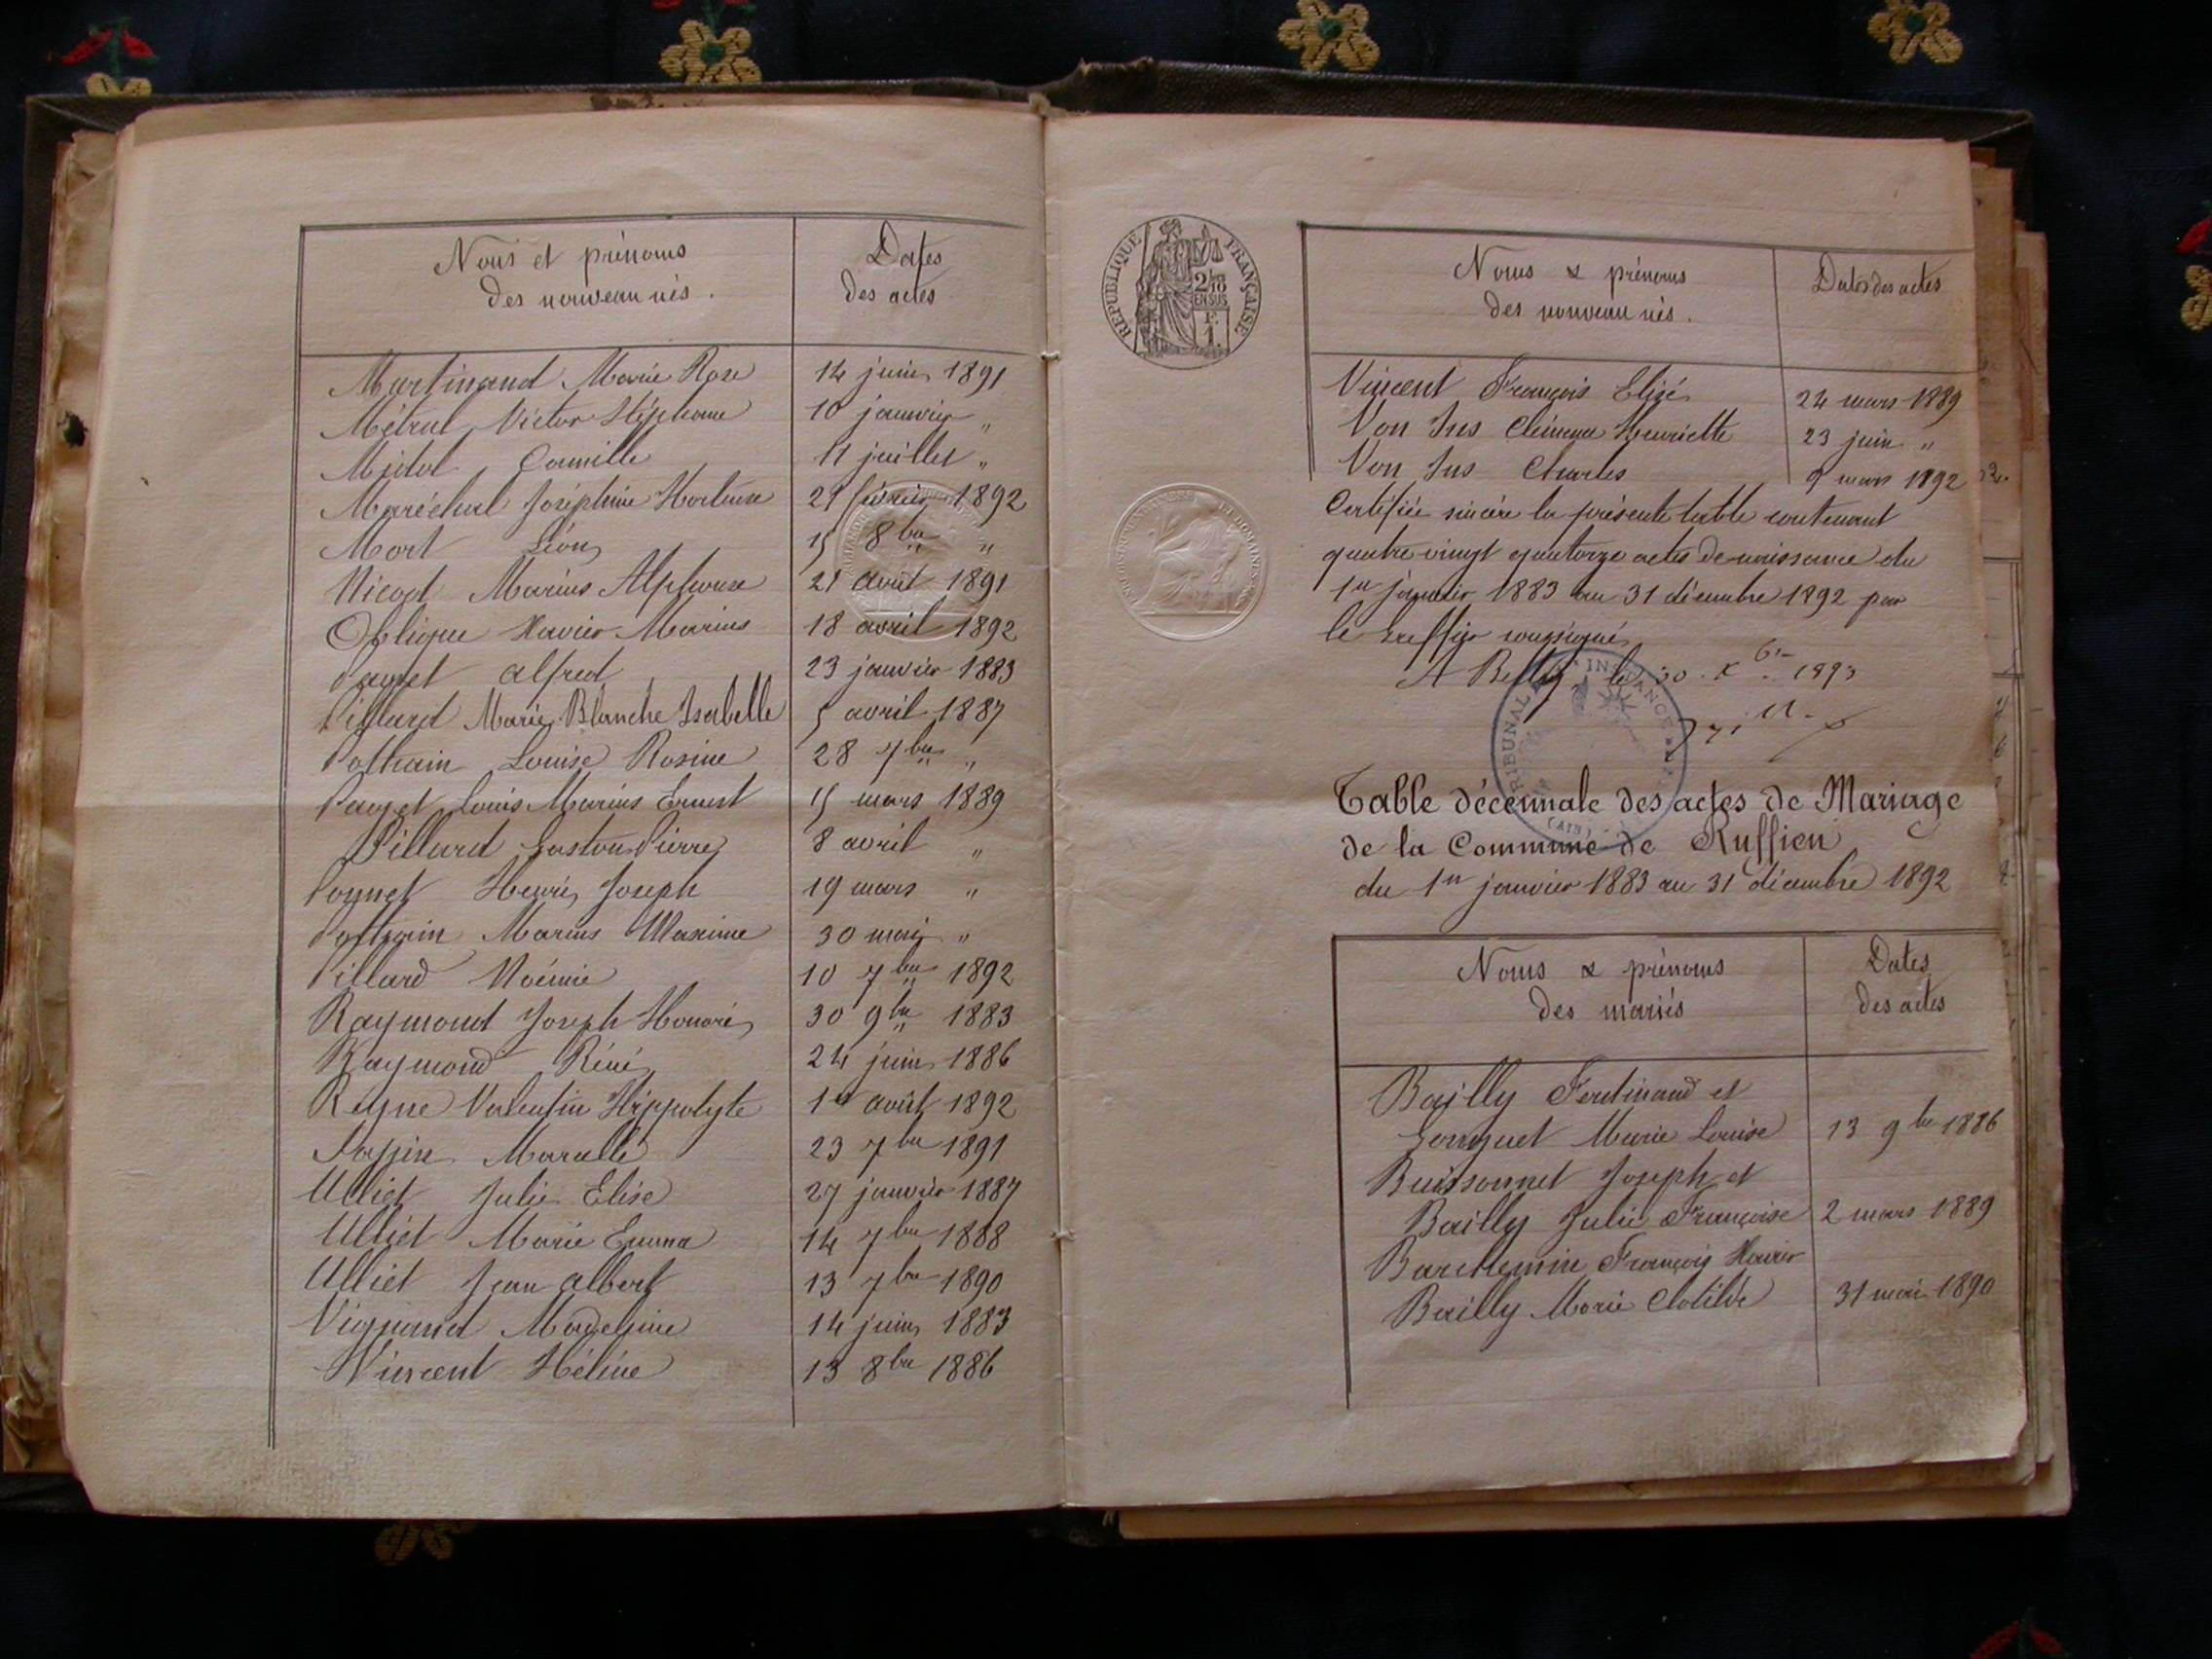 Noms et prénoms
des nouveau nés.
Dates
des actes
Martinand Marie Rose 14 juin 1891
Métral Victor Stéphane 10 janvier "
Midol Camille 11 juillet "
Maréchal Joséphine Hortense 29 février 1892
Mort Léon 15 8bre "
Nicod Marius Alphonse 21 août 1891
Xavier Marius 18 avril 1892
Payet Alfred 23 janvier 1883
Pillard Marie Blanche Isabelle 5 avril 1887
Pothain Louise Rosine 28 7bre "
Payet Louis Marius Ernest 15 mars 1889
Pillard Gaston Pierre 8 avril "
Henri Joseph 19 mars "
Pothain Marius Maxime 30 mai "
Pillard Noémie 10 7bre 1892
Raymond Joseph Honoré 30 9bre 1883
Raymond Réné 24 juin 1886
Reyne Valentin Hippolyte 1er août 1892
Marcelle 23 7bre 1891
Ulliet Julie Elise 27 janvier 1887
Ulliet Marie Emma 14 7bre 1888
Ulliet Jean Albert 13 7bre 1890
Vignand Madeleine 14 juin 1883
Vincent Hélène 13 8bre 1886
RÉPUBLIQUE FRANÇAISE
2/10
EN SUS
F.
1.
Noms & prénoms
des nouveau nés.
Dates des actes
Vincent François Elisé 24 mars 1889
Von Ins Clémence Henriette 23 juin "
Von Ins Charles 9 mars 1892
Certifiée sincère la présente table contenant
quatre vingt quatorze actes de naissance du
1er janvier 1883 au 31 décembre 1892 par
le Greffier soussigné
A Belley, le 30 Xbre 1893
TRIBUNAL INSTANCE
(AIN)
Table décennale des actes de Mariage
de la Commune de Ruffieu
du 1er janvier 1883 au 31 décembre 1892
Noms & prénoms
des mariés
Dates
des actes
Bailly Ferdinand et
Gonguet Marie Louise 13 9bre 1886
Buissonnet Joseph et
Bailly Julie Françoise 2 mars 1889
Barchemin François Xavier
Bailly Marie Clotilde 31 mai 1890